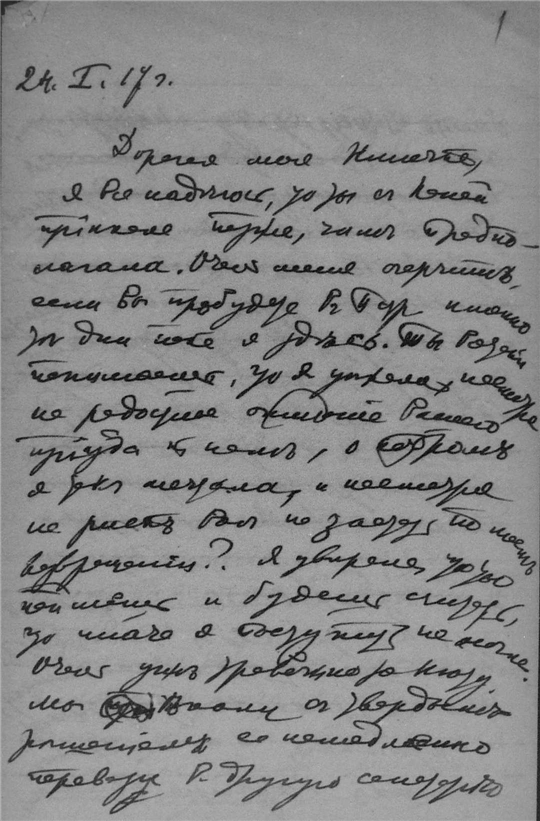 1
24. I. 17 г.
Дорогая моя Ниночка,
я все надеюсь, что ты с Женей
приехала позже, чем предпо-
лагала. Очень меня огорчит,
если Вы пробудете в Птр именно
те дни пока я здесь. Ты
понимаешь, что я уехала, несмотря
на радостное ожидание Вашего
приезда к нам, о котором
я так мечтала, и несмотря
на риск Вас не застать по моем
возвращении?. Я уверена, что ты
поймешь и будешь считать,
что иначе я поступить не могла.
Очень уж тревожно за
мы с твердым
решением ее немедленно
перевезти в другую санаторию